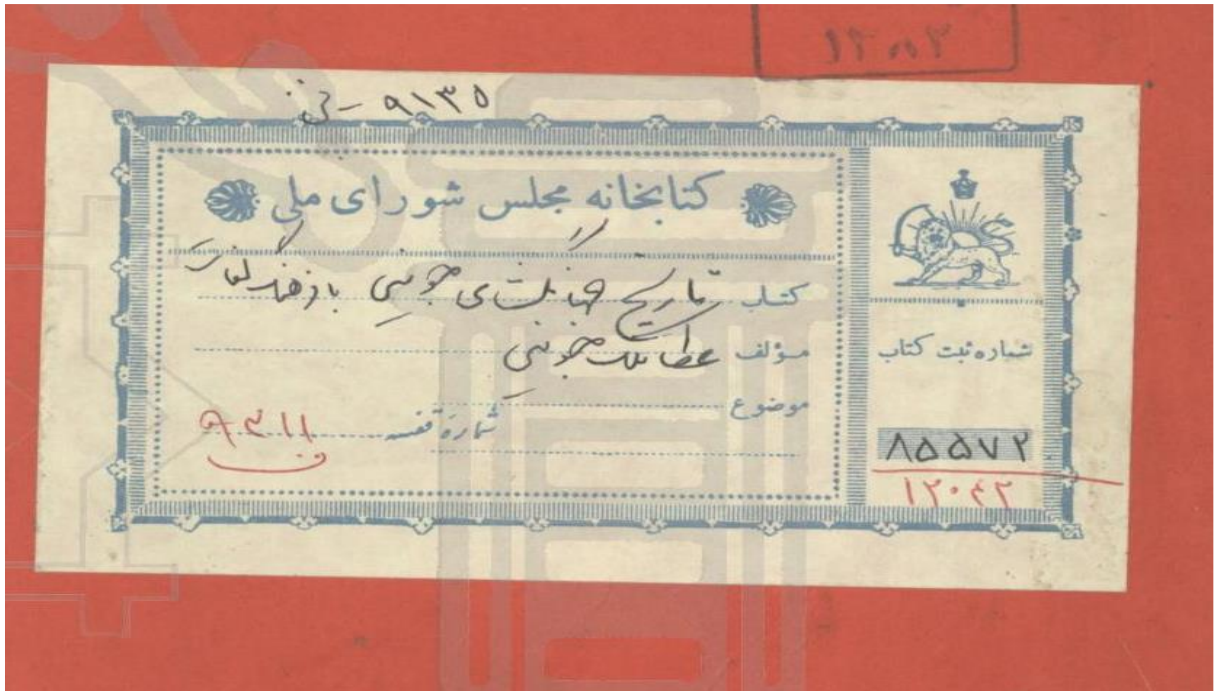 ۹۱۳۵ - ف
کتابخانه مجلس شورای ملی
کتاب تاریخ جهانگشای جوینی
مؤلف عطا ملک جوینی
موضوع
شماره قفسه ۹۳۱۱
ف
شماره ثبت کتاب
۸۵۵۷۲
۱۲۰۴۲